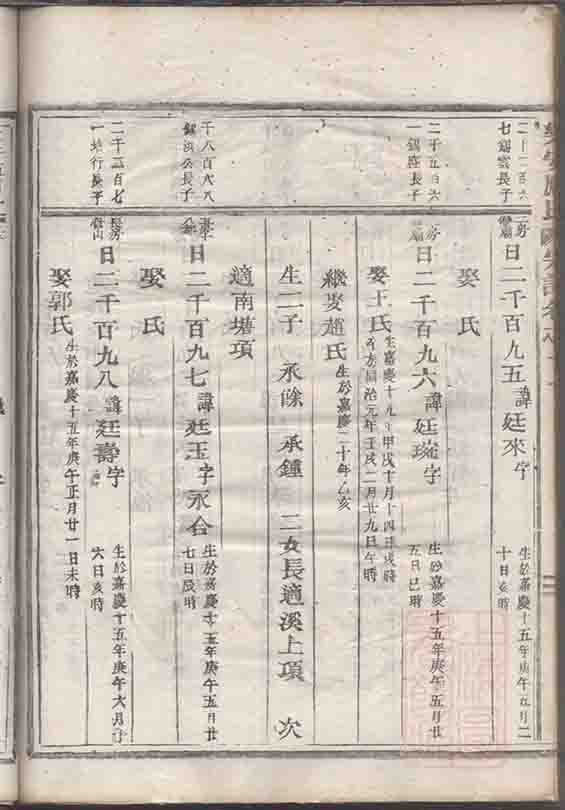 二房
日二千百九五 諱廷來字
生於嘉慶十五年庚午五月二
十日亥時
娶 氏
二千五百六
一 長子
二房
日二千百九六 諱廷 字
生於嘉慶十五年庚午五月廿
五日巳時
娶王氏
生嘉慶十九年甲戌十月十四日戌時
卒於同治元年壬戌二月廿九日午時
繼娶趙氏 生於嘉慶二十年乙亥
生二子 承餘 承鍾 二女長適溪上項 次
適南塘項
千八百八八
公長子
日二千百九七 諱廷玉字永合
生於嘉慶十五年庚午五月廿
七日辰時
娶 氏
二千三百七
一 行長子
長房
日二千百九八 諱廷壽字
生於嘉慶十五年庚午六月
六日亥時
娶郭氏 生於嘉慶十五年庚午正月廿一日未時